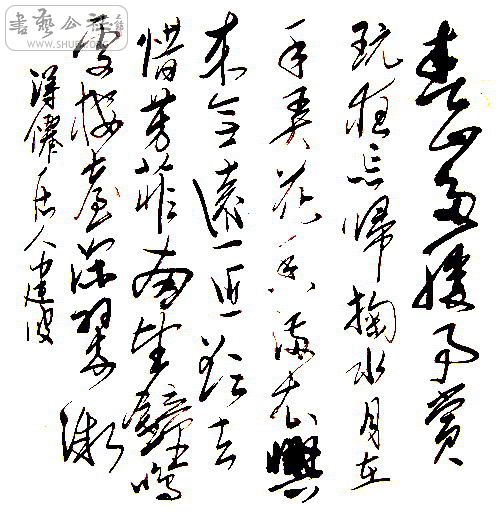 書藝公社
春山多勝事賞
玩夜忘歸掬水月在
手弄花香滿衣興
来无遠近欲去
惜芳菲南望鐘鳴
處楼臺深翠微
居人建波